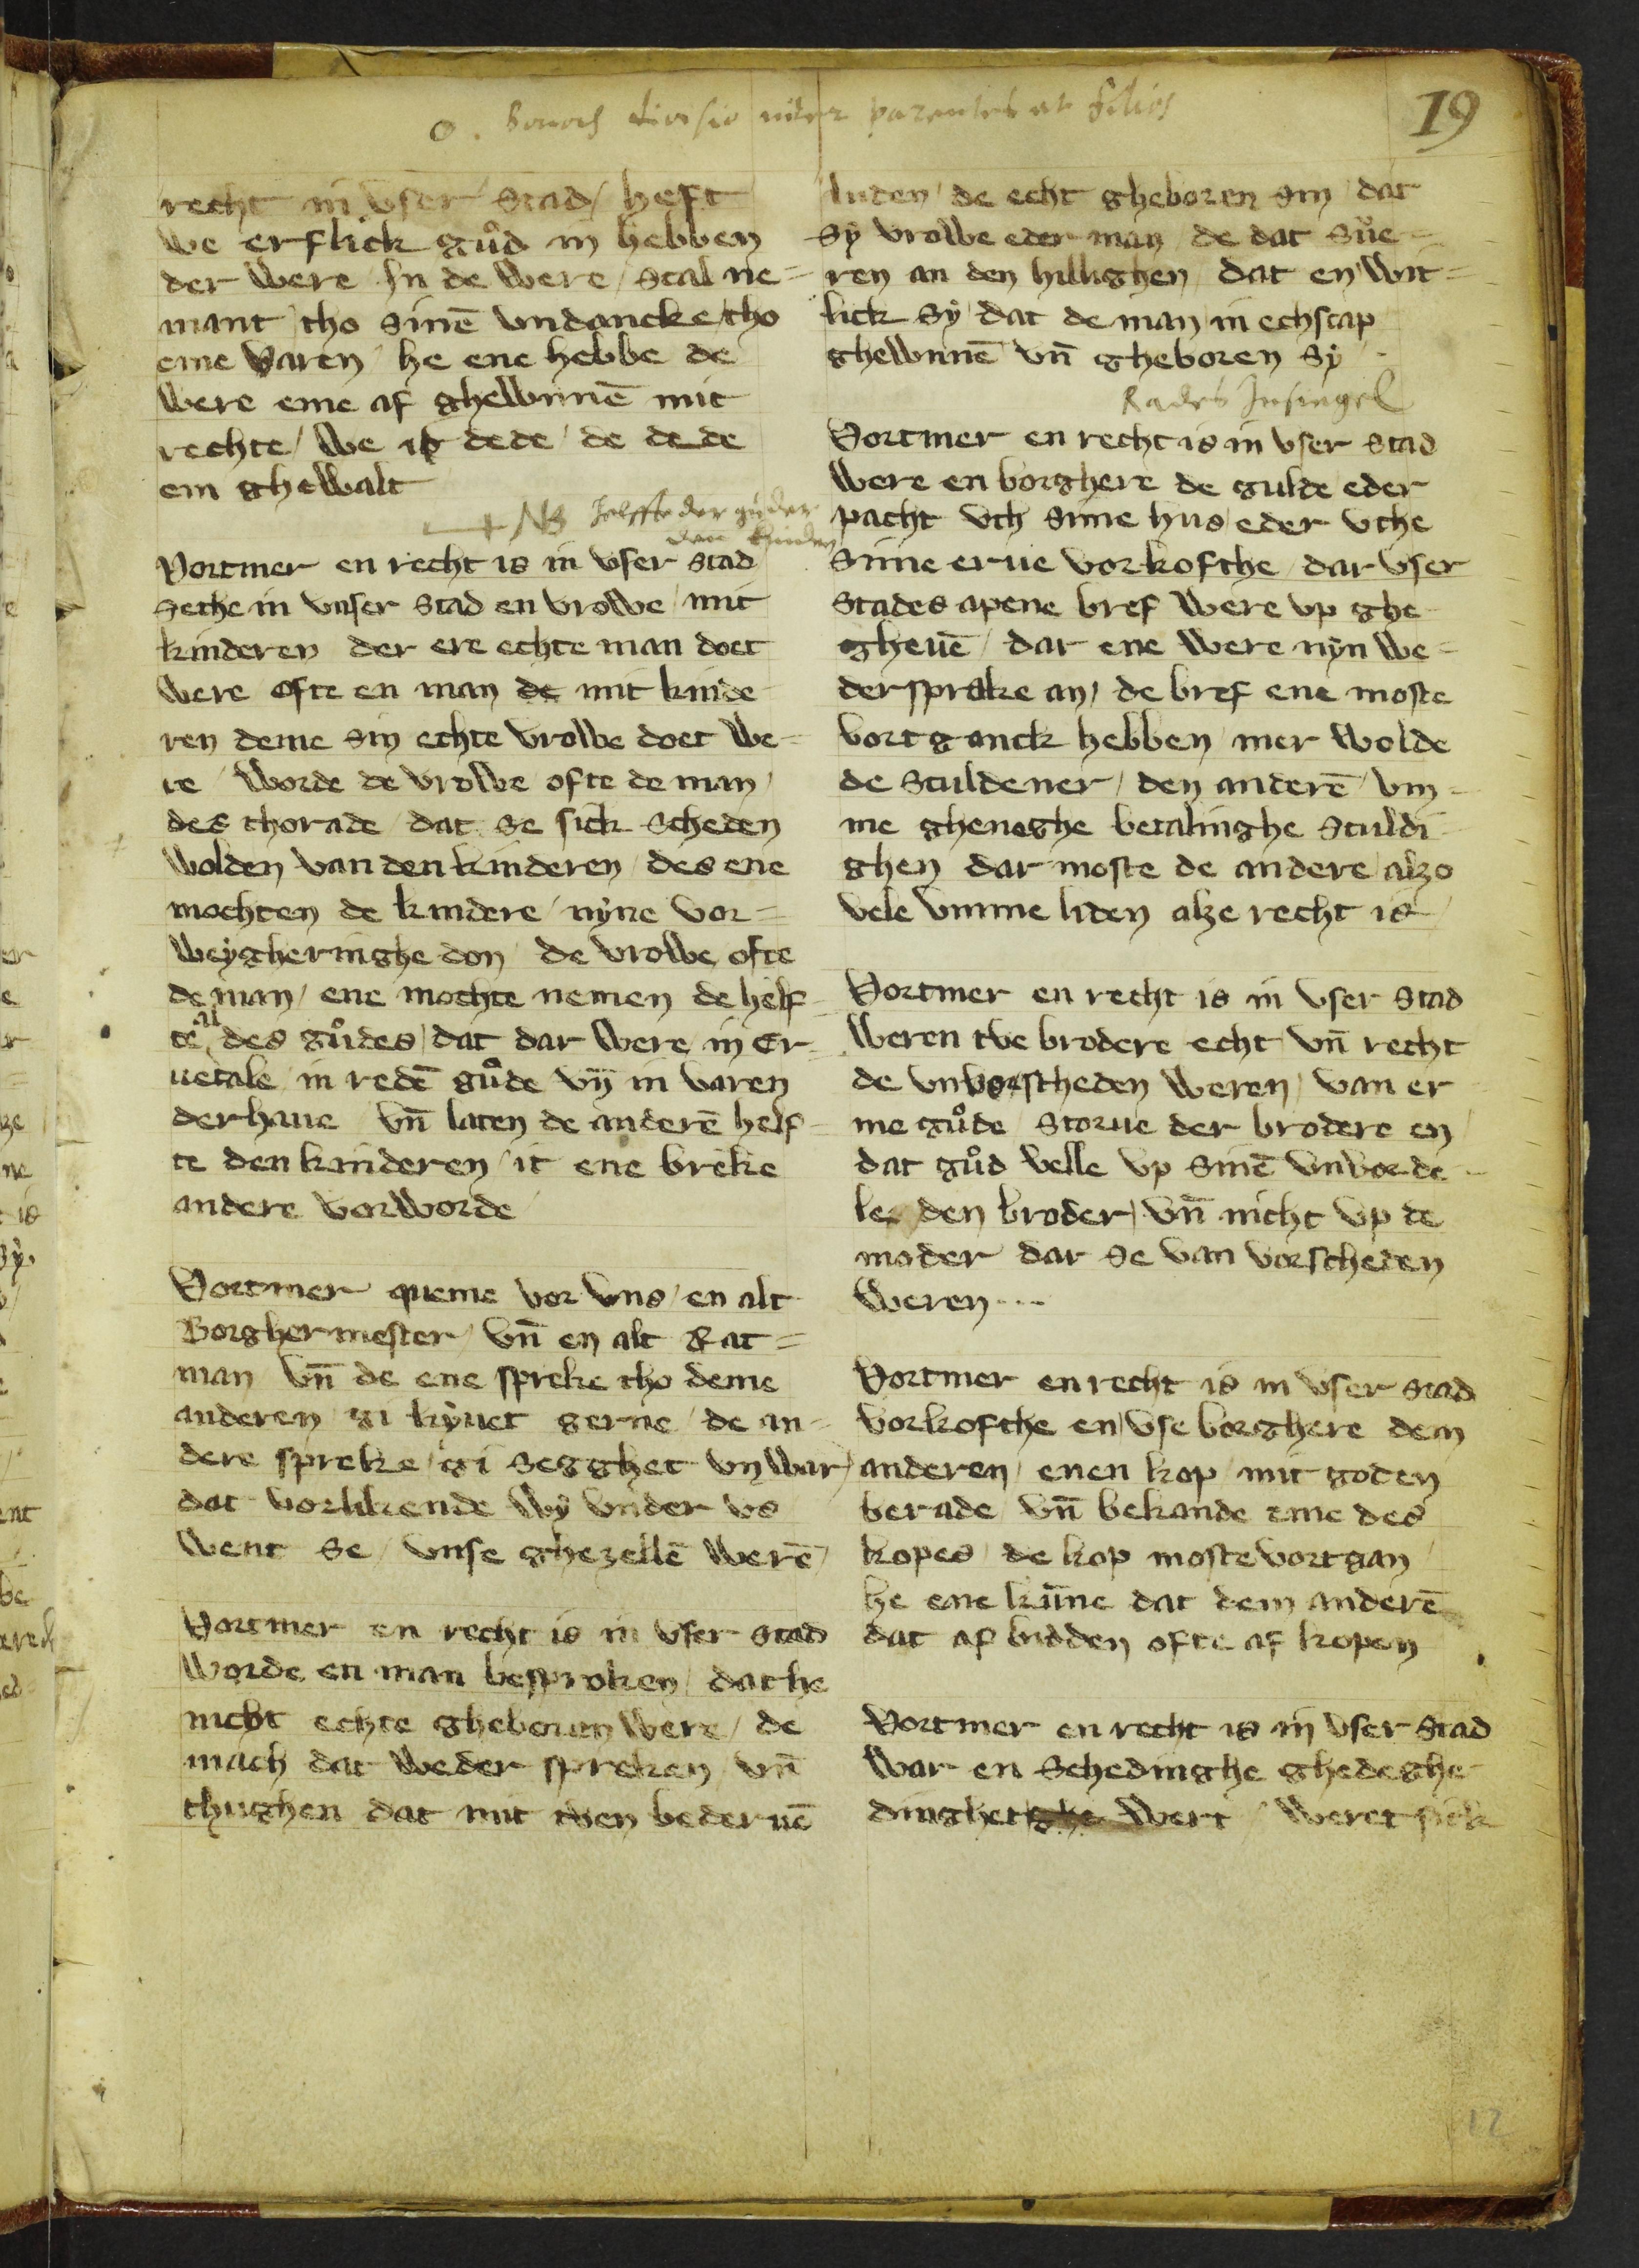 19
o. Bonorum divisio inter parentes et filios
recht in vser Stad / heft
we erflick gůd in hebben
der were / In de were / Scal ne=
mant tho sinē vndancke / tho
eme varen / he ene hebbe de
were eme af ghewnnē mit
rechte / we is dede / de dede
em ghewalt
NB helffte der güder
den kinderen
Vortmer en recht is in vser Stad
Sethe in vnser Stad en vrowe / mit
kinderen der ere echte man doet
were ofte en man de mit kinde
ren deme sin echte vrowe doet we=
re / worde de vrowe ofte de man /
des thorade / dat se sick scheden
wolden van den kinderen / des ene
mochten de kindere / nyne vor=
weygheringhe don / de vrowe ofte
de man / ene mochte nemen de helf
te al des gůdes / dat dar were in er
uetale / in redē gůde vn̄ in varen
der haue vn̄ laten de anderē helf
te den kinderen / it ene breke
andere vorworde
Vortmer queme vor vns / en alt
Borghermester / vn̄ en alt Rat=
man vn̄ de ene spreke tho deme
anderen gi kyuet gerne / de an=
dere spreke / gi segghet vnwar /
dat vorlikende wy vnder vs
went se / vnse ghezellē werē /
Vortmer en recht is in vser Stad
worde en man besproken / dat he
nicht echte gheboren were / de
mach dat weder spreken vn̄
thughen dat mit twen bederuē
luden / de echt gheboren sin / dat
Sy vrowe eder man / de dat Sue=
ren an den hillighen / dat en wit=
lick sy / dat de man in echscap
ghewnnē vn̄ gheboren sy
Rades Insiegel
Vortmer en recht is in vser Stad
were en borghere de gulde eder
pacht vth sime hus / eder vthe
sime erue vorkofthe / dar vser
Stades apene bref were vp ghe
gheuē / dar ene were nyn we=
dersprake an / de bref ene moste
vortganck hebben / mer wolde
de sculdener / den anderē / vm
me gheneghe betalinghe sculdi
ghen dar moste de andere / alzo
vele vmme liden alze recht is
Vortmer en recht is in vser Stad
weren twe brodere echt vn̄ recht
de vnvorscheden weren / van er
me gůde / storue der brodere en /
dat gůd velle vp sinē vnvorde
le den broder / vn̄ nicht vp de
moder dar se van vorscheden
weren
Vortmer en recht is in vser Stad
vorkofthe en / vse borghere dem
anderen / enen kop / mit goden
berade vn̄ bekande eme des
kopes / de kop moste vortgan /
he ene kūne dat dem anderē
dat af bidden ofte af kopen
Vortmer en recht is in vser Stad
war en schedinghe ghedeghe
dinghet wert / weret sick
12